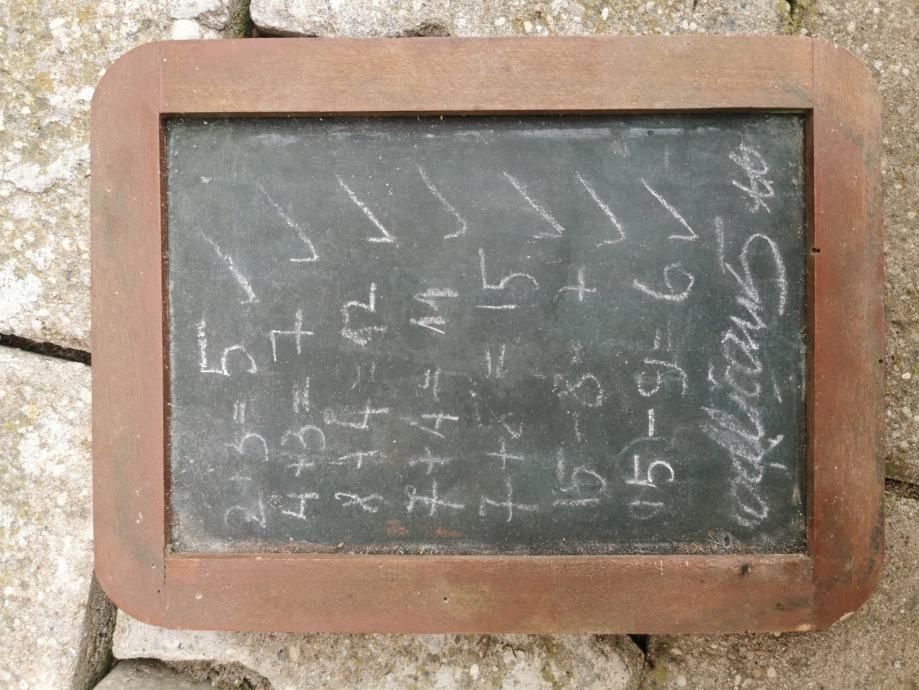 2+3= 5 ✓
4+3= 7 ✓
8+4= 12 ✓
7+4= 11 ✓
7+ = 15 ✓
15-8= 7 ✓
15-9= 6 ✓